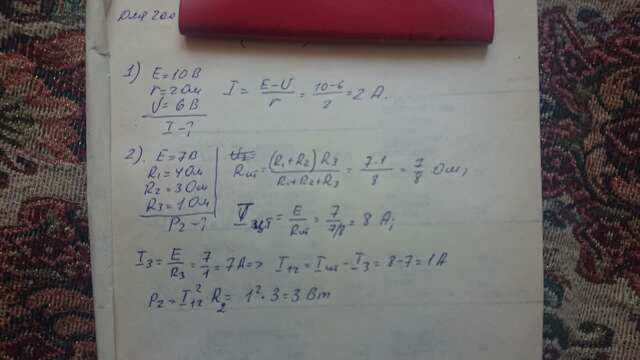 1) E=10 В
r=2 Ом
U=6 В
I-?
I = (E-U)/r = (10-6)/2 = 2 А.
2). E=7В
R₁=4 Ом
R₂=3 Ом
R₃=1 Ом
P₂-?
= (R₁+R₂)R₃/(R₁+R₂+R₃) = 7·1/8 = 7/8 Ом;
= E/ = 7/(7/8) = 8 А;
I₃ = E/R₃ = 7/1 = 7А => I₁₂ = - I₃ = 8-7 = 1А
P₂ = I₁₂² R₂ = 1²·3 = 3 Вт